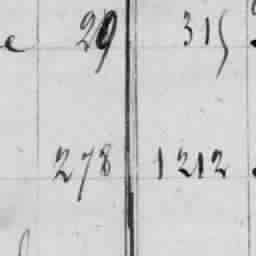 e 29 315
278 1212